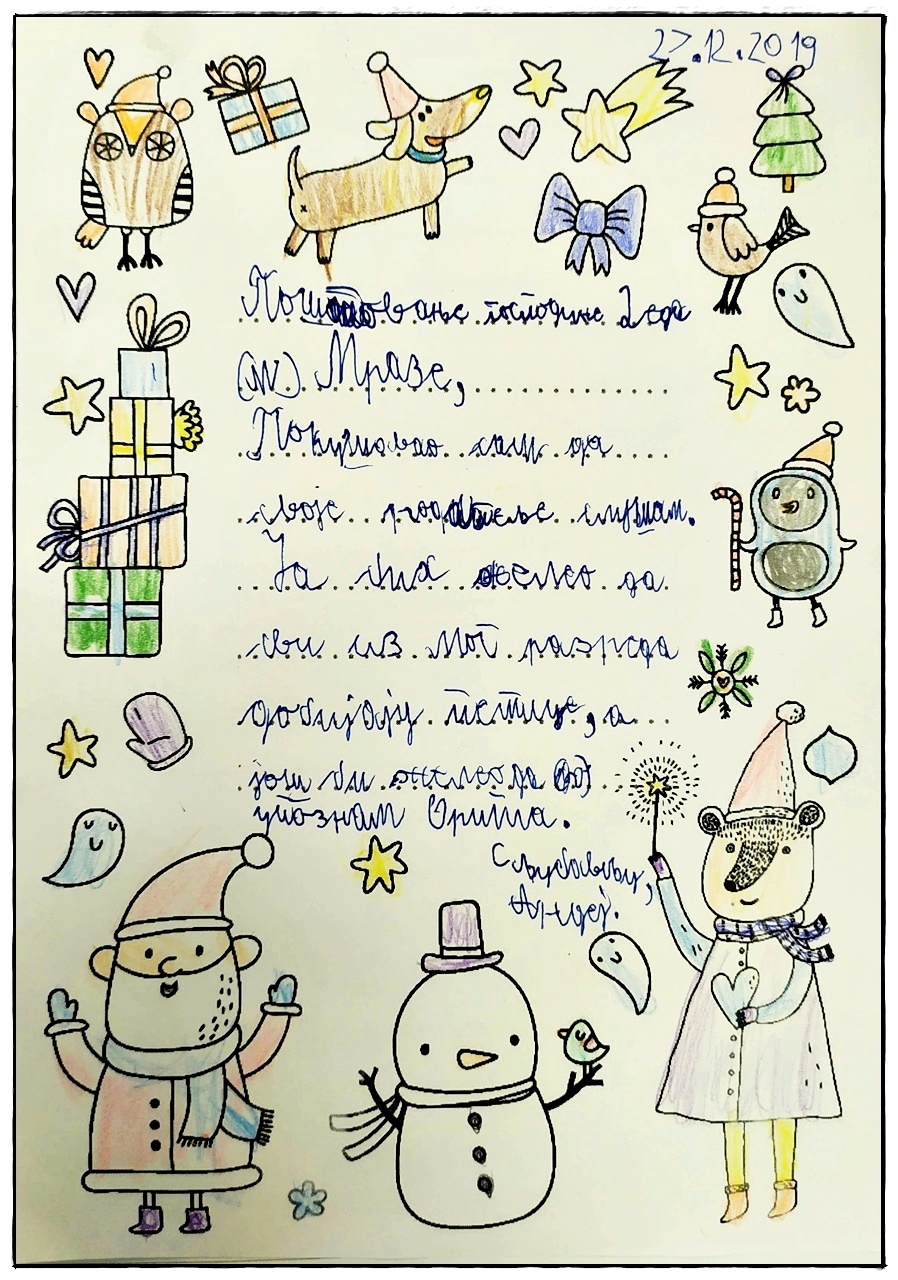 27.12.2019
Поштовање господине Деда
(М) Мразе,
Покушавао сам да
своје родитеље слушам.
Ја бих желео да
сви из мог разреда
добијају петице, а
још би желео да
упознам Ориђа.
С љубављу,
Андреј.